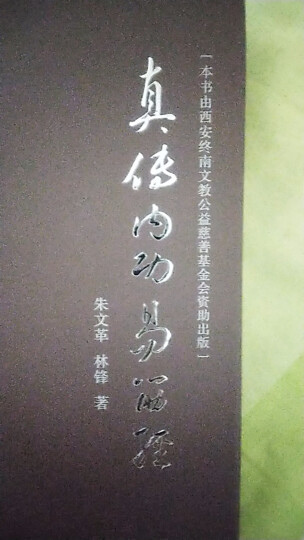 [本书由西安终南文教公益慈善基金会资助出版]
真传内功易筋经
朱文革 林锋 著